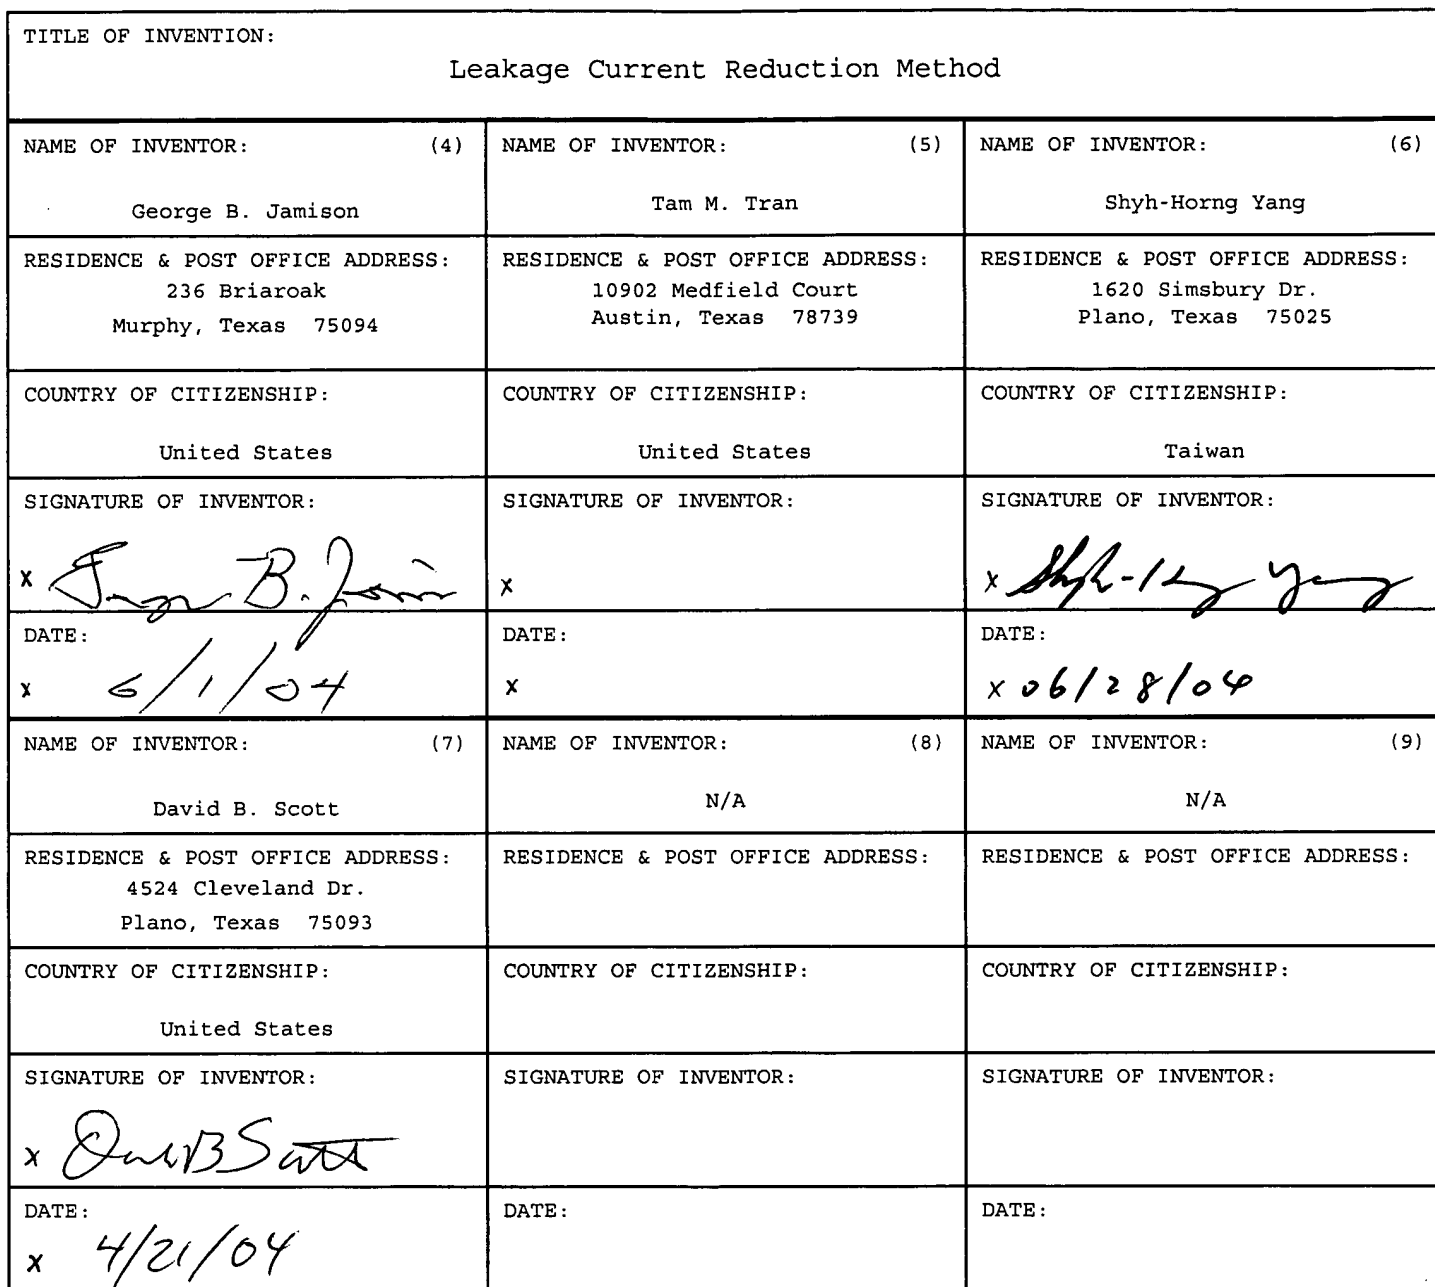 TITLE OF INVENTION:
Leakage Current Reduction Method
NAME OF INVENTOR: (4)
George B. Jamison
NAME OF INVENTOR: (5)
Tam M. Tran
NAME OF INVENTOR: (6)
Shyh-Horng Yang
RESIDENCE & POST OFFICE ADDRESS:
236 Briaroak
Murphy, Texas 75094
RESIDENCE & POST OFFICE ADDRESS:
10902 Medfield Court
Austin, Texas 78739
RESIDENCE & POST OFFICE ADDRESS:
1620 Simsbury Dr.
Plano, Texas 75025
COUNTRY OF CITIZENSHIP:
United States
COUNTRY OF CITIZENSHIP:
United States
COUNTRY OF CITIZENSHIP:
Taiwan
SIGNATURE OF INVENTOR:
x B.
SIGNATURE OF INVENTOR:
x
SIGNATURE OF INVENTOR:
x Yang
DATE:
x 6/1/04
DATE:
x
DATE:
x 06/28/04
NAME OF INVENTOR: (7)
David B. Scott
NAME OF INVENTOR: (8)
N/A
NAME OF INVENTOR: (9)
N/A
RESIDENCE & POST OFFICE ADDRESS:
4524 Cleveland Dr.
Plano, Texas 75093
RESIDENCE & POST OFFICE ADDRESS:
RESIDENCE & POST OFFICE ADDRESS:
COUNTRY OF CITIZENSHIP:
United States
COUNTRY OF CITIZENSHIP:
COUNTRY OF CITIZENSHIP:
SIGNATURE OF INVENTOR:
x B Scott
SIGNATURE OF INVENTOR:
SIGNATURE OF INVENTOR:
DATE:
x 4/21/04
DATE:
DATE: